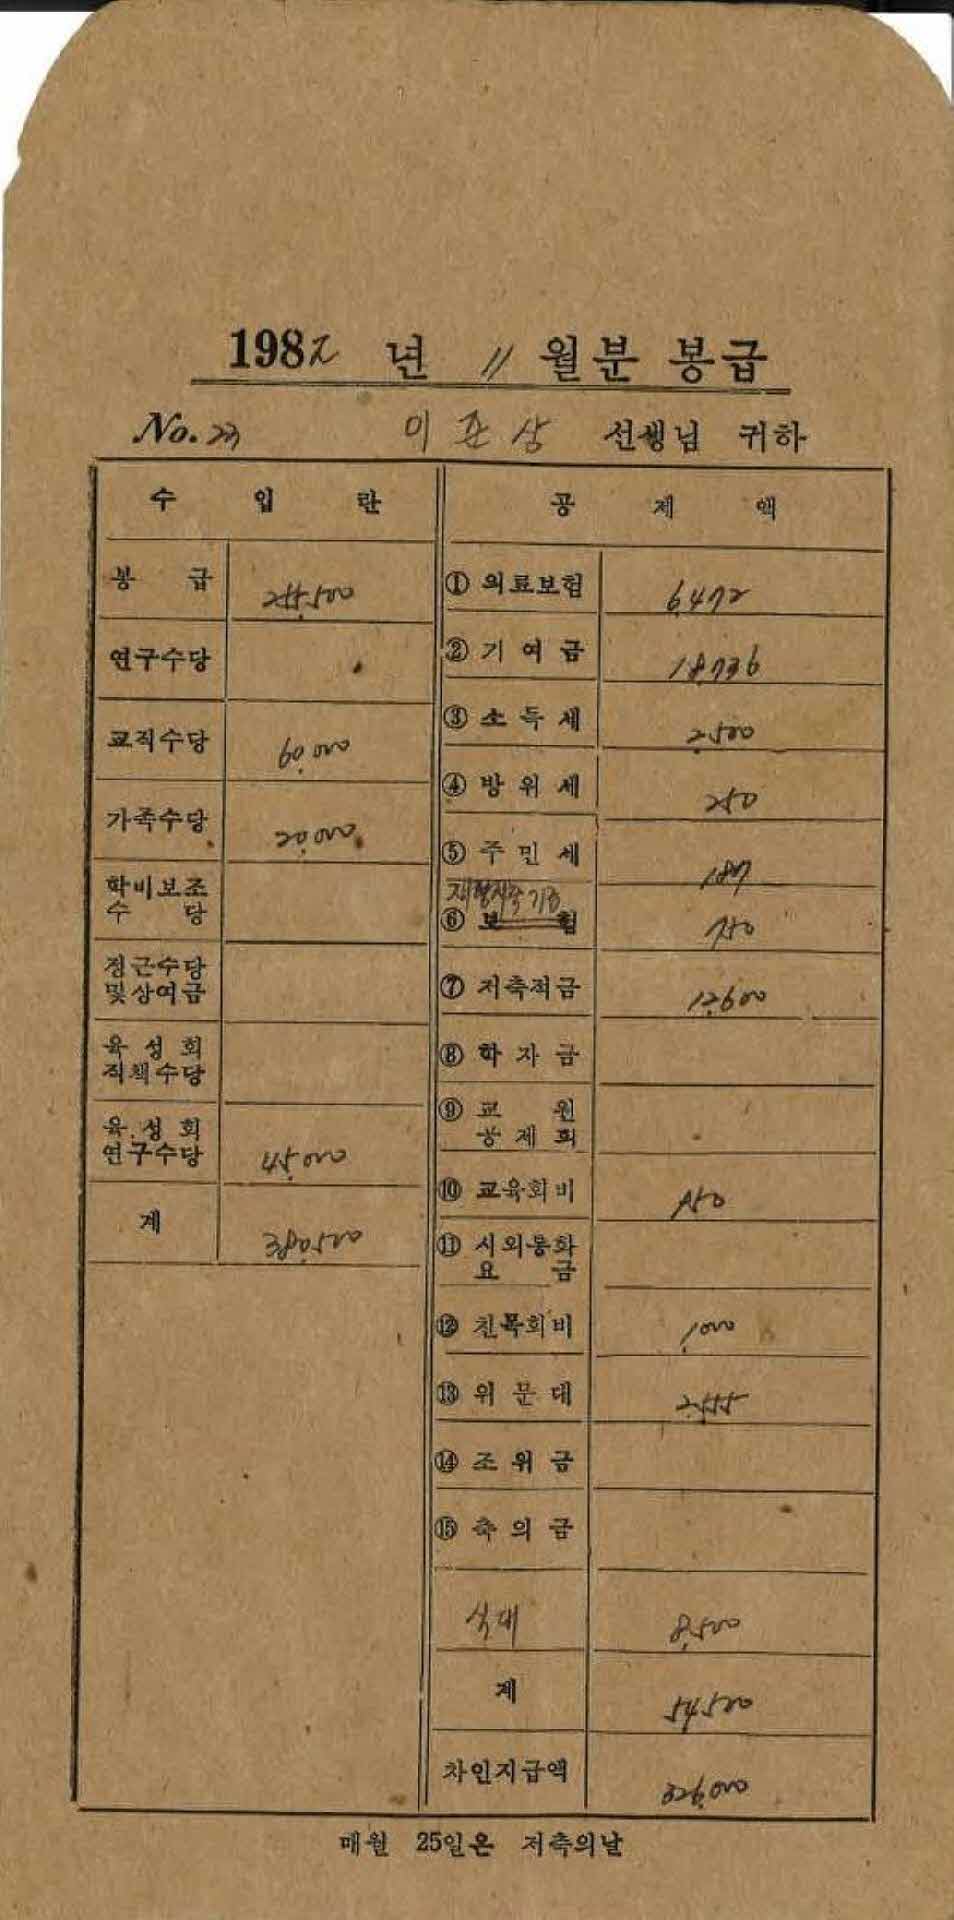 1982 년 11 월분 봉급
No. 23 이준상 선생님 귀하
수 입 란
봉 급 255,500
연구수당
교직수당 60,000
가족수당 20,000
학비보조
수 당
정근수당
및상여금
육 성 회
직책수당
육 성 회
연구수당 45,000
계 380,500
공 제 액
① 의료보험 6,472
② 기 여 금 18,736
③ 소 득 세 2,500
④ 방 위 세 250
⑤ 주 민 세 187
재형저축기금
⑥ 보 험 750
⑦ 저축적금 12,600
⑧ 학 자 금
⑨ 교 원
공 제 회
⑩ 교육회비 950
⑪ 시외통화
요 금
⑫ 친목회비 1,000
⑬ 위 문 대 2,555
⑭ 조 위 금
⑮ 축 의 금
식대 8,500
계 54,500
차인지급액 326,000
매월 25일은 저축의날